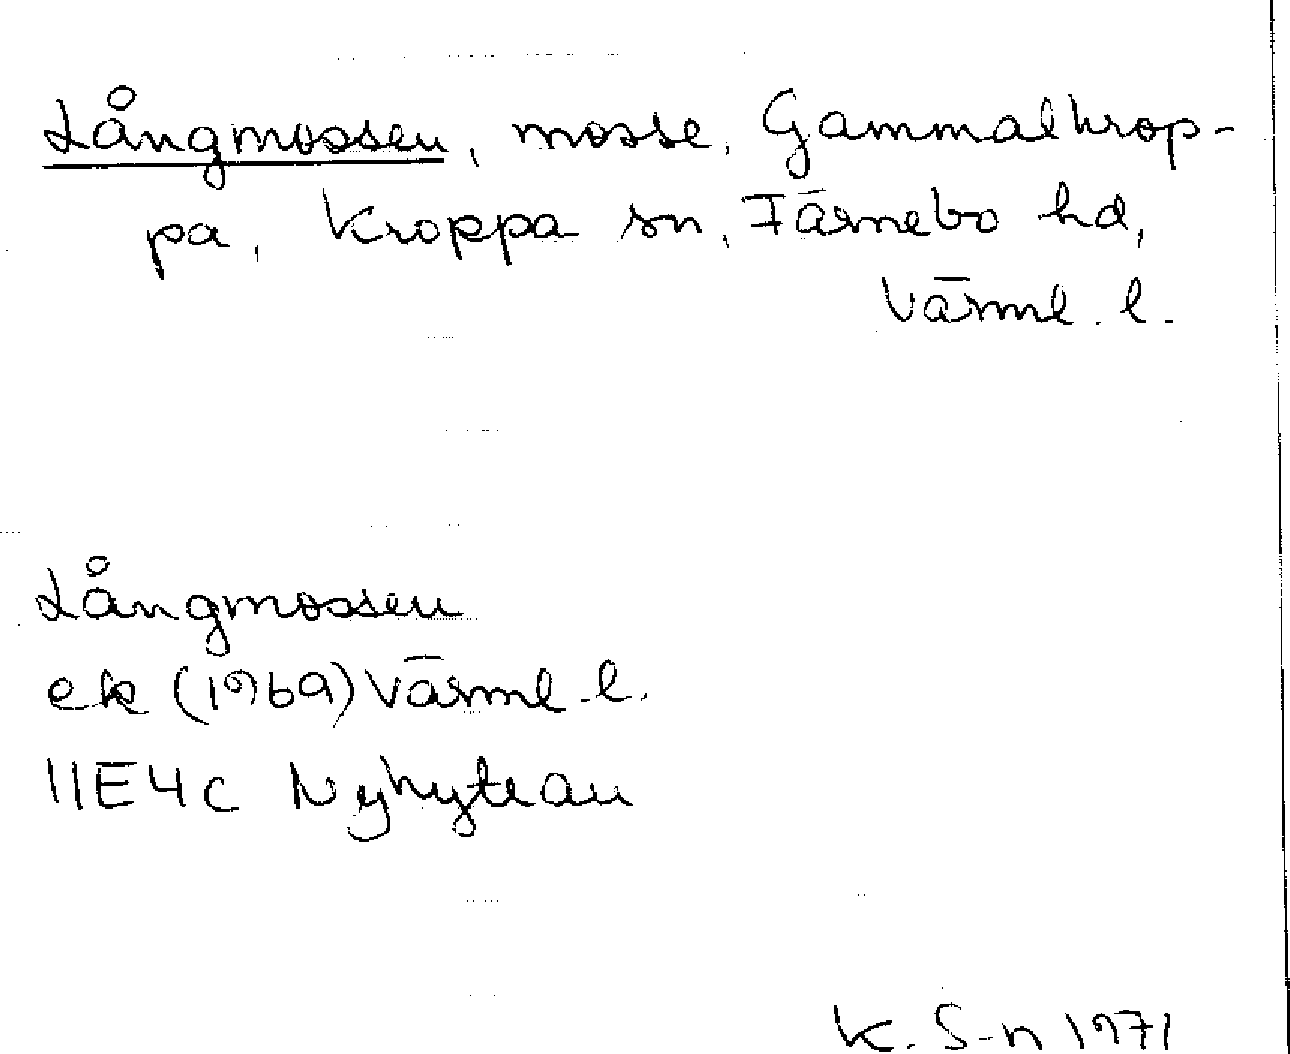 Långmossen, mosse, Gammalkrop-
pa, Kroppa sn, Färnebo hd,
Värml. l.
Långmossen
ek (1969) Värml. l.
11E4c Nyhyttan
K. S-n 1971